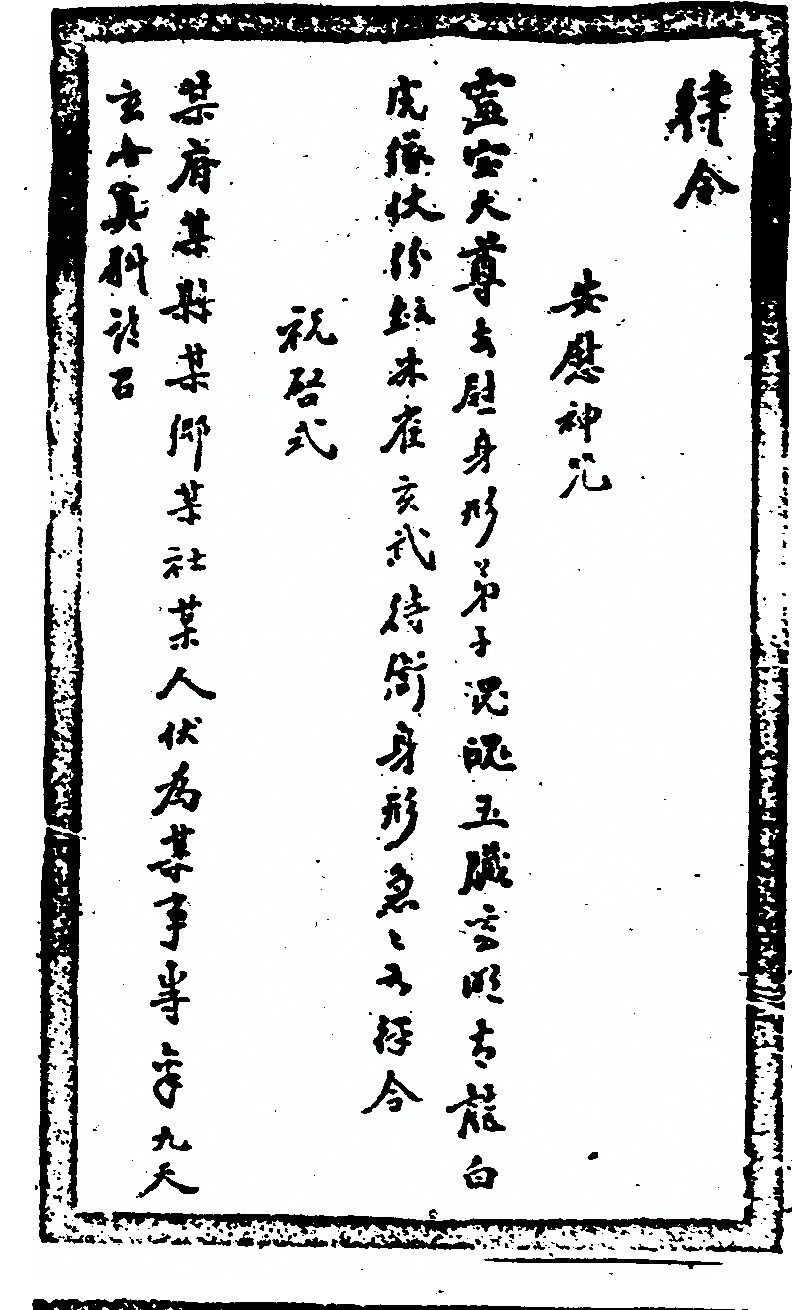 律令
安慰神咒
灵宝天尊安慰身形弟子混魄五臟玄明青龍白
虎隊仗紛紜朱雀玄武侍衛身形急々如律令
祝啓式
某府某縣某鄉某社某人伏為某事等奉九天
玄女真科